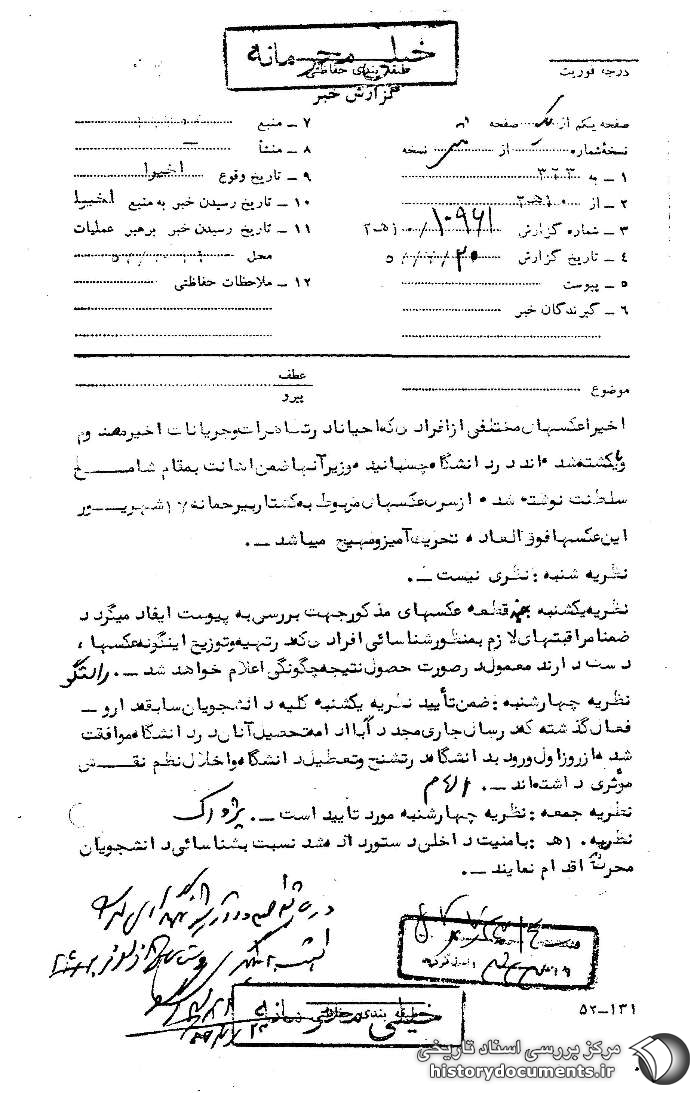 خیلی محرمانه
طبقه بندی حفاظتی
گزارش خبر
درجه فوریت
صفحه یکم از یک صفحه
نسخه شماره از نسخه
۱ ـ به ۳۲۳
۲ ـ از ۱۰ه۲
۳ ـ شماره گزارش ۱۰۹۶۱ /۱۰ه۲
۴ ـ تاریخ گزارش
۵ ـ پیوست
۶ ـ گیرندگان خبر
۷ ـ منبع
۸ ـ منشأ
۹ ـ تاریخ وقوع اخیرا
۱۰ ـ تاریخ رسیدن خبر به منبع اخیرا
۱۱ ـ تاریخ رسیدن خبر برهبر عملیات
محل
۱۲ ـ ملاحظات حفاظتی
موضوع
عطف
پیرو
اخیرا عکسهای مختلفی از افرادی که احیانا در تظاهرات و جریانات اخیر مصدوم
و یا کشته شده اند در دانشگاه چسبانیده و زیر آنها ضمن اهانت بمقام شامخ
سلطنت نوشته شده از سری عکسهای مربوط به کشتار بیرحمانه ۱۷ شهریور
این عکسها فوق العاده تحریک آمیز و مهیج میباشد ـ.
نظریه شنبه : نظری نیست ـ.
نظریه یکشنبه قطعه عکسهای مذکور جهت بررسی به پیوست ایفاد میگردد
ضمنا مراقبتهای لازم بمنظور شناسائی افرادی که در تهیه و توزیع اینگونه عکسها ،
دست دارند معمول در صورت حصول نتیجه چگونگی اعلام خواهد شد ـ.
نظریه چهارشنبه : ضمن تأیید نظریه یکشنبه کلیه دانشجویان سابقه دار و ـ
فعال گذشته که در سال جاری مجددآ با ادامه تحصیل آنان در دانشگاه موافقت
شده از روز اول ورود بدانشگاه در تشنج و تعطیل دانشگاه و اخلال نظم نقش
مؤثری داشته اند ـ. الهام
نظریه جمعه : نظریه چهارشنبه مورد تایید است ـ. پژواک
نظریه ۱۰ه : بامنیت داخلی دستور داده شد نسبت بشناسائی دانشجویان
محرک اقدام نمایند ـ.
خیلی محرمانه
طبقه بندی حفاظتی
۵۲ــ۱۳۱
مرکز بررسی اسناد تاریخی
historydocuments.ir